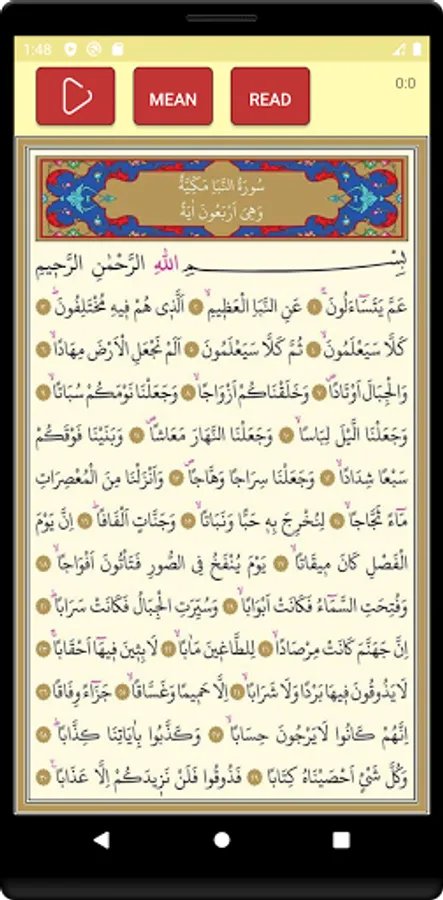 1:48
MEAN
READ
0:0
سُورَةُ النَّبَإِ مَكِّيَّةٌ
وَهِيَ اَرْبَعُونَ اٰيَةً
بِسْمِ اللّٰهِ الرَّحْمٰنِ الرَّحِيمِ
عَمَّ يَتَسَٓاءَلُونَۚ ﴿١﴾ عَنِ النَّبَأِ الْعَظِيمِۙ ﴿٢﴾ اَلَّذِى هُمْ فِيهِ مُخْتَلِفُونَۜ ﴿٣﴾
كَلَّا سَيَعْلَمُونَۙ ﴿٤﴾ ثُمَّ كَلَّا سَيَعْلَمُونَ ﴿٥﴾ اَلَمْ نَجْعَلِ الْاَرْضَ مِهَادًاۙ ﴿٦﴾
وَالْجِبَالَ اَوْتَادًاۖ ﴿٧﴾ وَخَلَقْنَاكُمْ اَزْوَاجًاۙ ﴿٨﴾ وَجَعَلْنَا نَوْمَكُمْ سُبَاتًاۙ ﴿٩﴾
وَجَعَلْنَا الَّيْلَ لِبَاسًاۙ ﴿١٠﴾ وَجَعَلْنَا النَّهَارَ مَعَاشًاۖ ﴿١١﴾ وَبَنَيْنَا فَوْقَكُمْ
سَبْعًا شِدَادًاۙ ﴿١٢﴾ وَجَعَلْنَا سِرَاجًا وَهَّاجًاۖ ﴿١٣﴾ وَاَنْزَلْنَا مِنَ الْمُعْصِرَاتِ
مَٓاءً ثَجَّاجًاۙ ﴿١٤﴾ لِنُخْرِجَ بِهِ حَبًّا وَنَبَاتًاۙ ﴿١٥﴾ وَجَنَّاتٍ اَلْفَافًاۜ ﴿١٦﴾ اِنَّ يَوْمَ
الْفَصْلِ كَانَ مِيقَاتًاۙ ﴿١٧﴾ يَوْمَ يُنْفَخُ فِى الصُّورِ فَتَأْتُونَ اَفْوَاجًاۙ ﴿١٨﴾
وَفُتِحَتِ السَّمَٓاءُ فَكَانَتْ اَبْوَابًاۙ ﴿١٩﴾ وَسُيِّرَتِ الْجِبَالُ فَكَانَتْ سَرَابًاۜ ﴿٢٠﴾
اِنَّ جَهَنَّمَ كَانَتْ مِرْصَادًاۙ ﴿٢١﴾ لِلطَّاغِينَ مَاٰبًاۙ ﴿٢٢﴾ لَابِثِينَ فِيهَٓا اَحْقَابًاۚ ﴿٢٣﴾
لَا يَذُوقُونَ فِيهَا بَرْدًا وَلَا شَرَابًاۙ ﴿٢٤﴾ اِلَّا حَمِيمًا وَغَسَّاقًاۙ ﴿٢٥﴾ جَزَٓاءً وِفَاقًاۜ ﴿٢٦﴾
اِنَّهُمْ كَانُوا لَا يَرْجُونَ حِسَابًاۙ ﴿٢٧﴾ وَكَذَّبُوا بِاٰيَاتِنَا كِذَّابًاۜ ﴿٢٨﴾
وَكُلَّ شَىْءٍ اَحْصَيْنَاهُ كِتَابًاۙ ﴿٢٩﴾ فَذُوقُوا فَلَنْ نَزِيدَكُمْ اِلَّا عَذَابًا۟ ﴿٣٠﴾